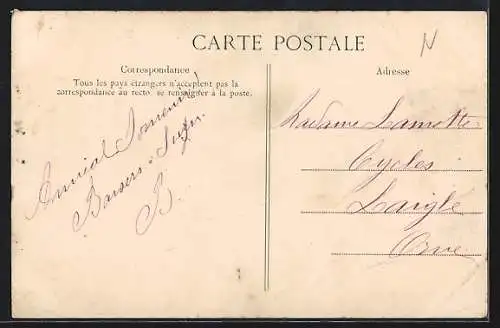 CARTE POSTALE
N
Correspondance
Tous les pays étrangers n'acceptent pas la
correspondance au recto, se renseigner à la poste.
Adresse
Amical Souvenir
Baisers
B.
Madame Lamotte
Cycles
Laigle
Orne